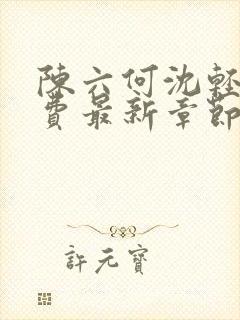 陳六何沈輕
費最新章節
許元寶